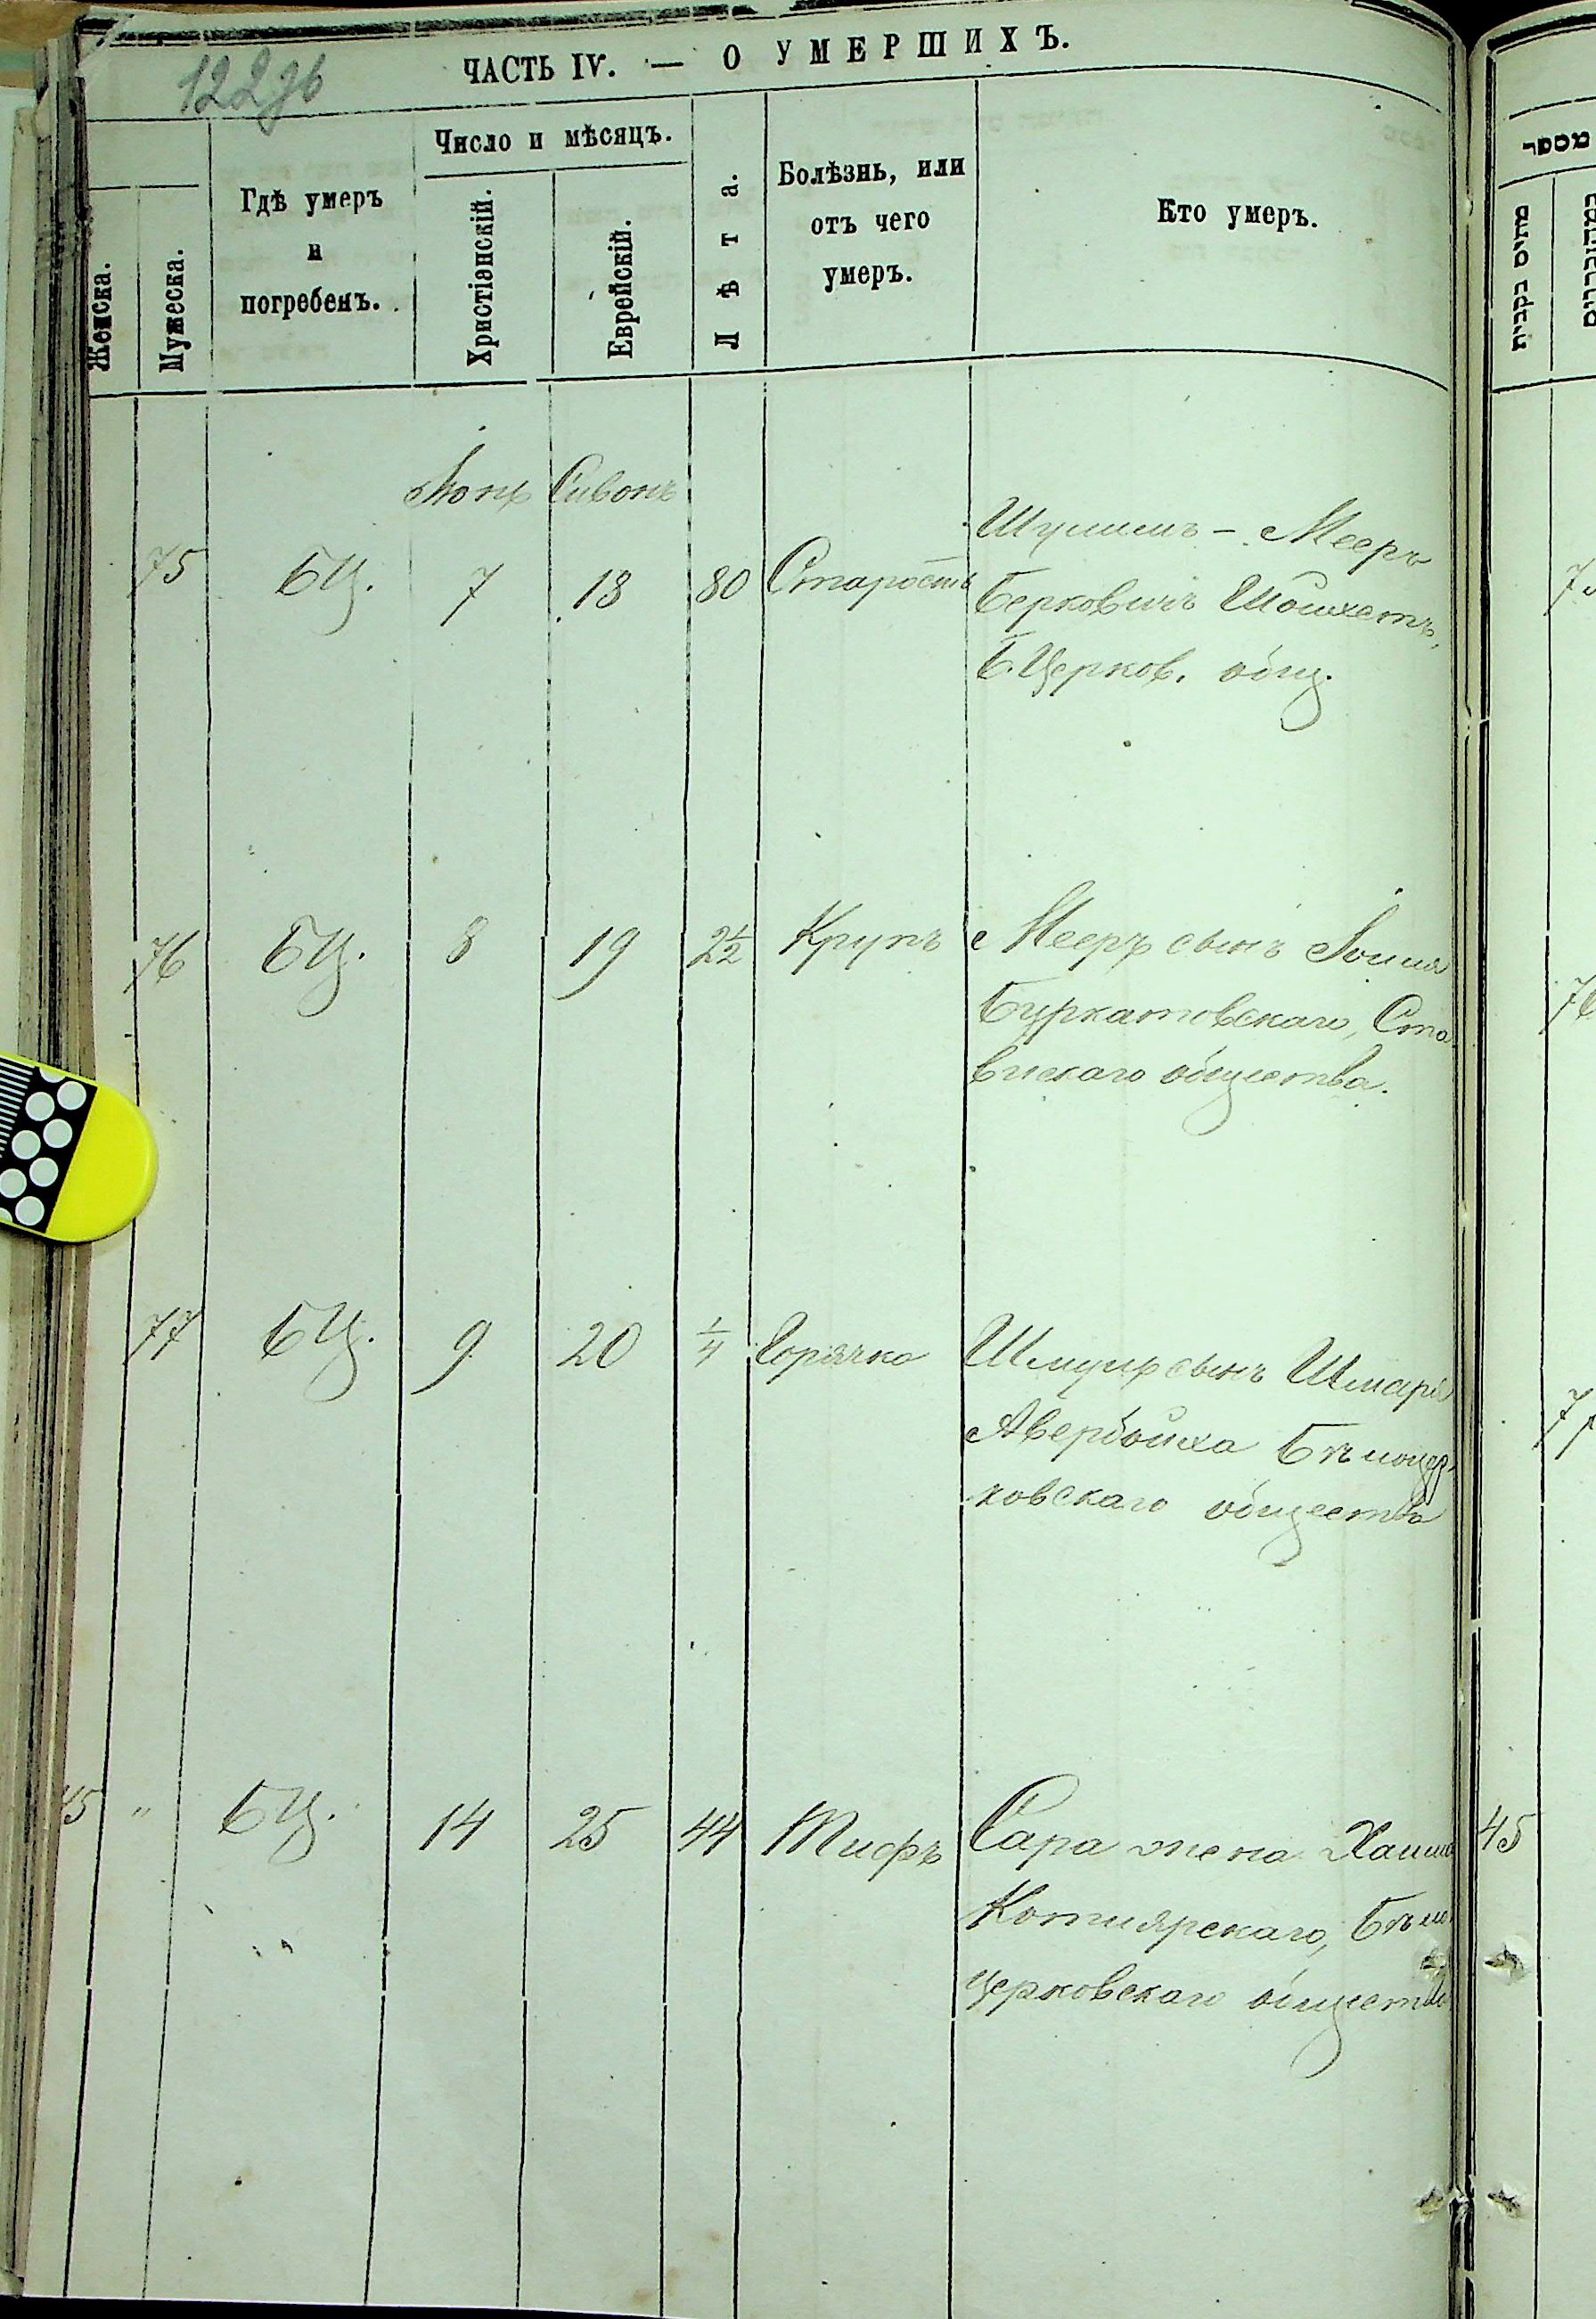 122зв
ЧАСТЬ IV. — О УМЕРШИХЪ.
Женска.
Мужеска.
Гдѣ умеръ
и
погребенъ.
Число и мѣсяцъ.
Христіанскій.
Еврейскій.
Лѣта.
Болѣзнь, или
отъ чего
умеръ.
Кто умеръ.
Сивонъ
75 БЦ. 7 18 80 Старость
Шулимъ - Мееръ
Берковичъ Шойхетъ,
Б.Церков. общ.
76 БЦ. 8 19 2½ Крупъ
Мееръ сынъ
Буркатовскаго, Ста
вискаго общества.
77 БЦ. 9 20 ¼ Горячка
Шмуль сынъ Шмарія
Авербойха Бѣлоцер
ковскаго общества
45 " БЦ. 14 25 44 Тифъ
Сара жена Хаима
Котлярскаго, Бѣло
церковскаго общества
מספר
מתים נקבית
75
76
77
45